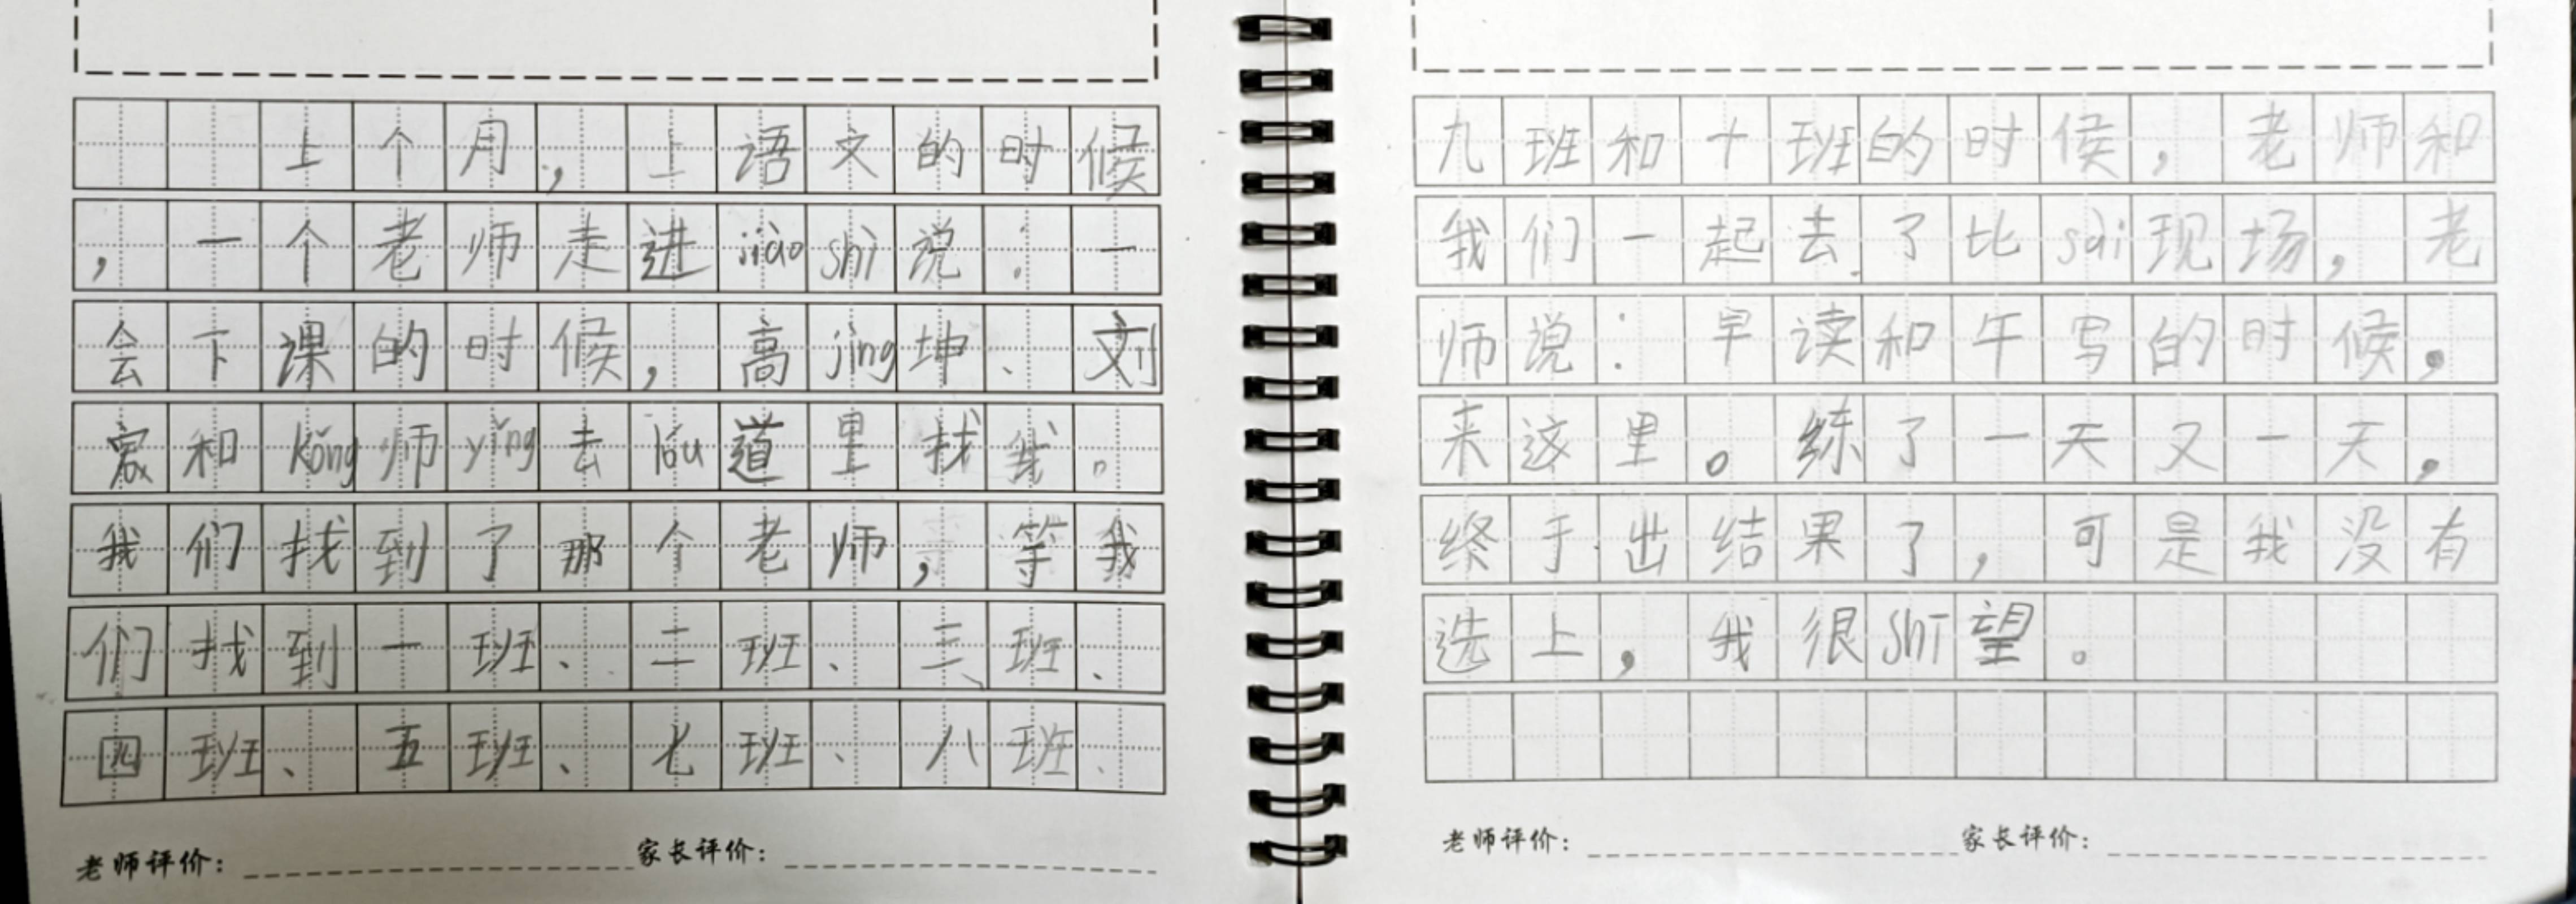 上个月，上语文的时候
，一个老师走进jiào shì说：一
会下课的时候，高jìng坤、刘
宸和kǒng师yǐng去lóu道里找我。
我们找到了那个老师，等我
们找到一班、二班、三班、
四班、五班、七班、八班、
老师评价： 家长评价：
九班和十班的时候，老师和
我们一起去了比sài现场，老
师说：早读和午写的时候，
来这里。练了一天又一天，
终于出结果了，可是我没有
选上，我很shī望。
老师评价： 家长评价：